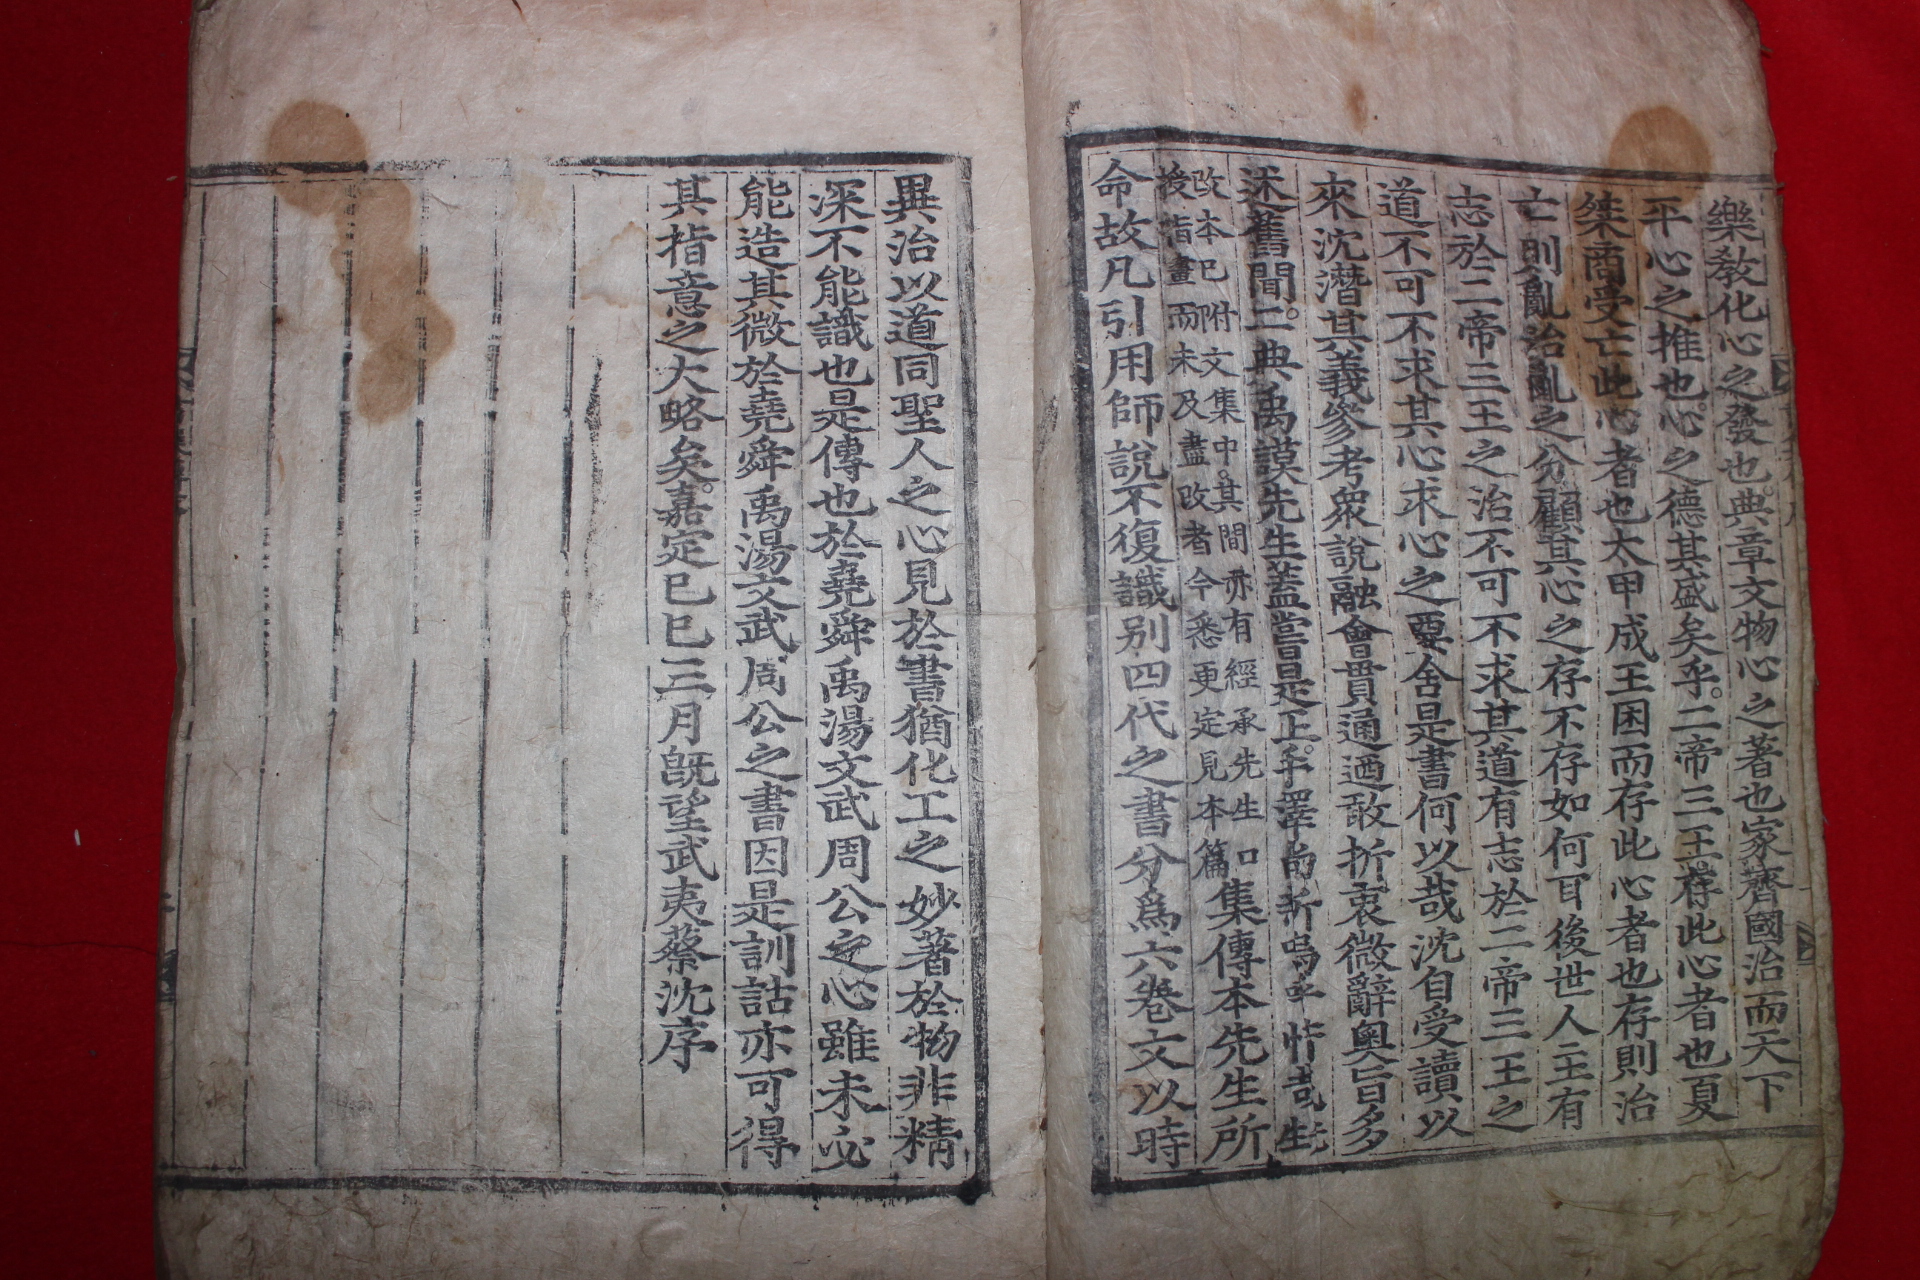 樂敎化心之發也典章文物心之著也家齊國治而天下
平心之推也心之德其盛矣乎二帝三王存此心者也夏
桀商受亡此心者也太甲成王困而存此心者也存則治
亡則亂治亂之分顧其心之存不存如何耳後世人主有
志於二帝三王之治不可不求其道有志於二帝三王之
道不可不求其心求心之要舍是書何以哉沈自受讀以
來沈潛其義參考衆說融會貫通迺敢折衷微辭奧旨多
述舊聞二典禹謨先生蓋嘗是正手澤尚新嗚呼惜哉先生
改本巳附文集中其間亦有經承先生口
授指畫而未及盡改者今悉更定見本篇
集傳本先生所
命故凡引用師說不復識别四代之書分爲六卷文以時
異治以道同聖人之心見於書猶化工之妙著於物非精
深不能識也是傳也於堯舜禹湯文武周公之心雖未必
能造其微於堯舜禹湯文武周公之書因是訓詁亦可得
其指意之大略矣嘉定巳巳三月旣望武夷蔡沈序